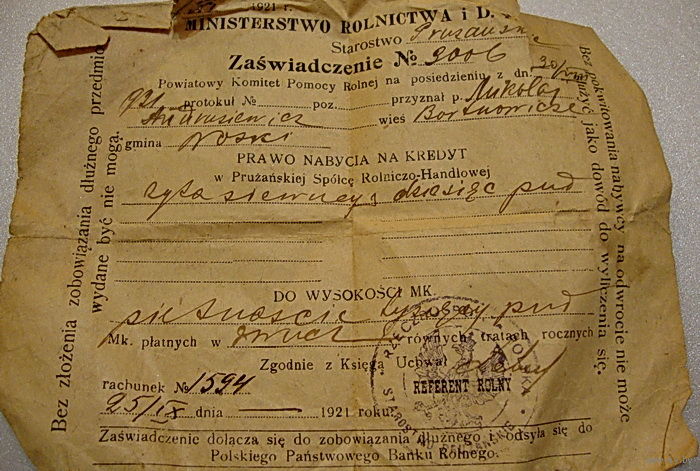 1921 r.
MINISTERSTWO ROLNICTWA i D.
Starostwo Prużańskie
Zaświadczenie № 3006
Powiatowy Komitet Pomocy Rolnej na posiedzeniu z dn. 30/VIII
921 protokuł № poz. przyznał p. Mikołaj
wieś Bortnowicze
gmina Noski
PRAWO NABYCIA NA KREDYT
w Prużańskiej Spółce Rolniczo-Handlowej
żyta siewnego dziesięć pud
DO WYSOKOŚCI MK.
piętnaście tysięcy pud
Mk. płatnych w dwuch równych tratach rocznych
Zgodnie z Księgą Uchwał
REFERENT ROLNY
rachunek № 1594
25/IX dnia — 1921 roku.
Zaświadczenie dołącza się do zobowiązania dłużnego i odsyła się do
Polskiego Państwowego Banku Rolnego.
Bez złożenia zobowiązania dłużnego przedmio
wydane być nie mogą.
Bez pokwitowania nabywcy na odwrocie nie może
służyć jako dowód do wyliczenia się.